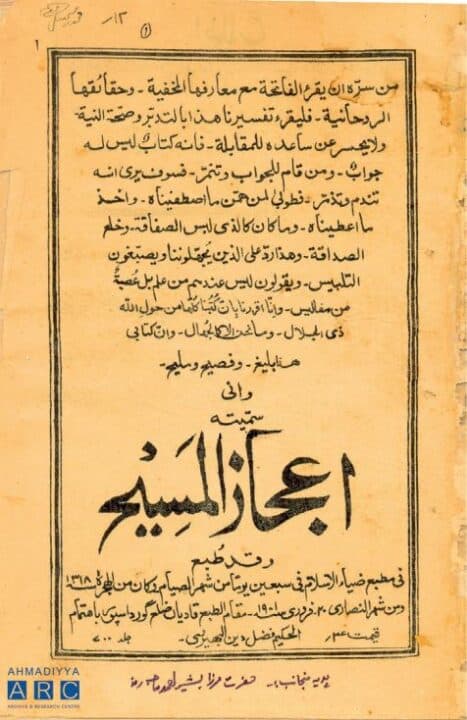 ١٢/
(١)
١
من سرّه ان يقرء الفاتحة مع معارفها المخفية - وحقائقها
الروحانية - فليقرء تفسيرنا هذا بالتدبّر وصحّة النية -
ولا يحسر عن ساعده للمقابلة - فانه كتاب ليس له
جواب - ومن قام للجواب وتنمّر - فسوف يرى انه
تندم وتذمّر - فطوبى لمن اصطفيناه - واخذ
ما اعطيناه - وما كان كالذى لبس الصفاقة - وخلع
الصداقة - وهذا ردّ على الذين يجهّلوننا ويصبّغون
التلبيس - ويقولون ليس عندهم من علم بل عُصبةٌ
من مفاليس - وانّا اقررنا بان كُتبنا كلّها من حول الله
ذى الجلال - وما نحن الا كالجُهّال - وانّ كتابى
هذا بليغ - وفصيح ومليح -
وانى
سمّيته
اعجاز المَسِيْح
وقد طُبع
فى مطبع ضياء الاسلام فى سبعين يومًا من شهر الصيام وكان من الهجرة ١٣١٨
ومن شهر النصارى ٢٠ فرورى ١٩٠١ - مقام الطبع قاديان ضلع گورداسپور باهتمام
الحكيم فضل دين البهيروى -
قيمت
جلد ٧٠٠
حضرت مرزا بشير احمد صاحب
AHMADIYYA
ARC
ARCHIVE & RESEARCH CENTRE